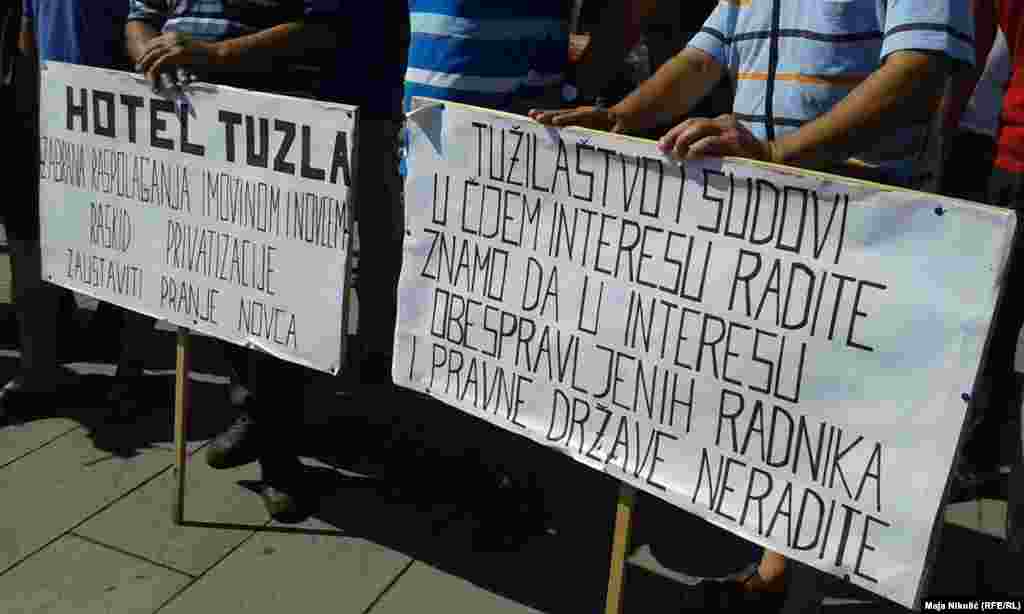 HOTEL TUZLA
ZABRANA RASPOLAGANJA I MOVINOM I NOVCEM
RASKID PRIVATIZACIJE
ZAUSTAVITI PRANJE NOVCA
TUŽILAŠTVO I SUDOVI
U ČOEM INTERESU RADITE
ZNAMO DA U INTERESU
OBESPRAVLJENIH RADNIKA
I PRAVNE DRŽAVE NERADITE
Maja Nikolić (RFE/RL)